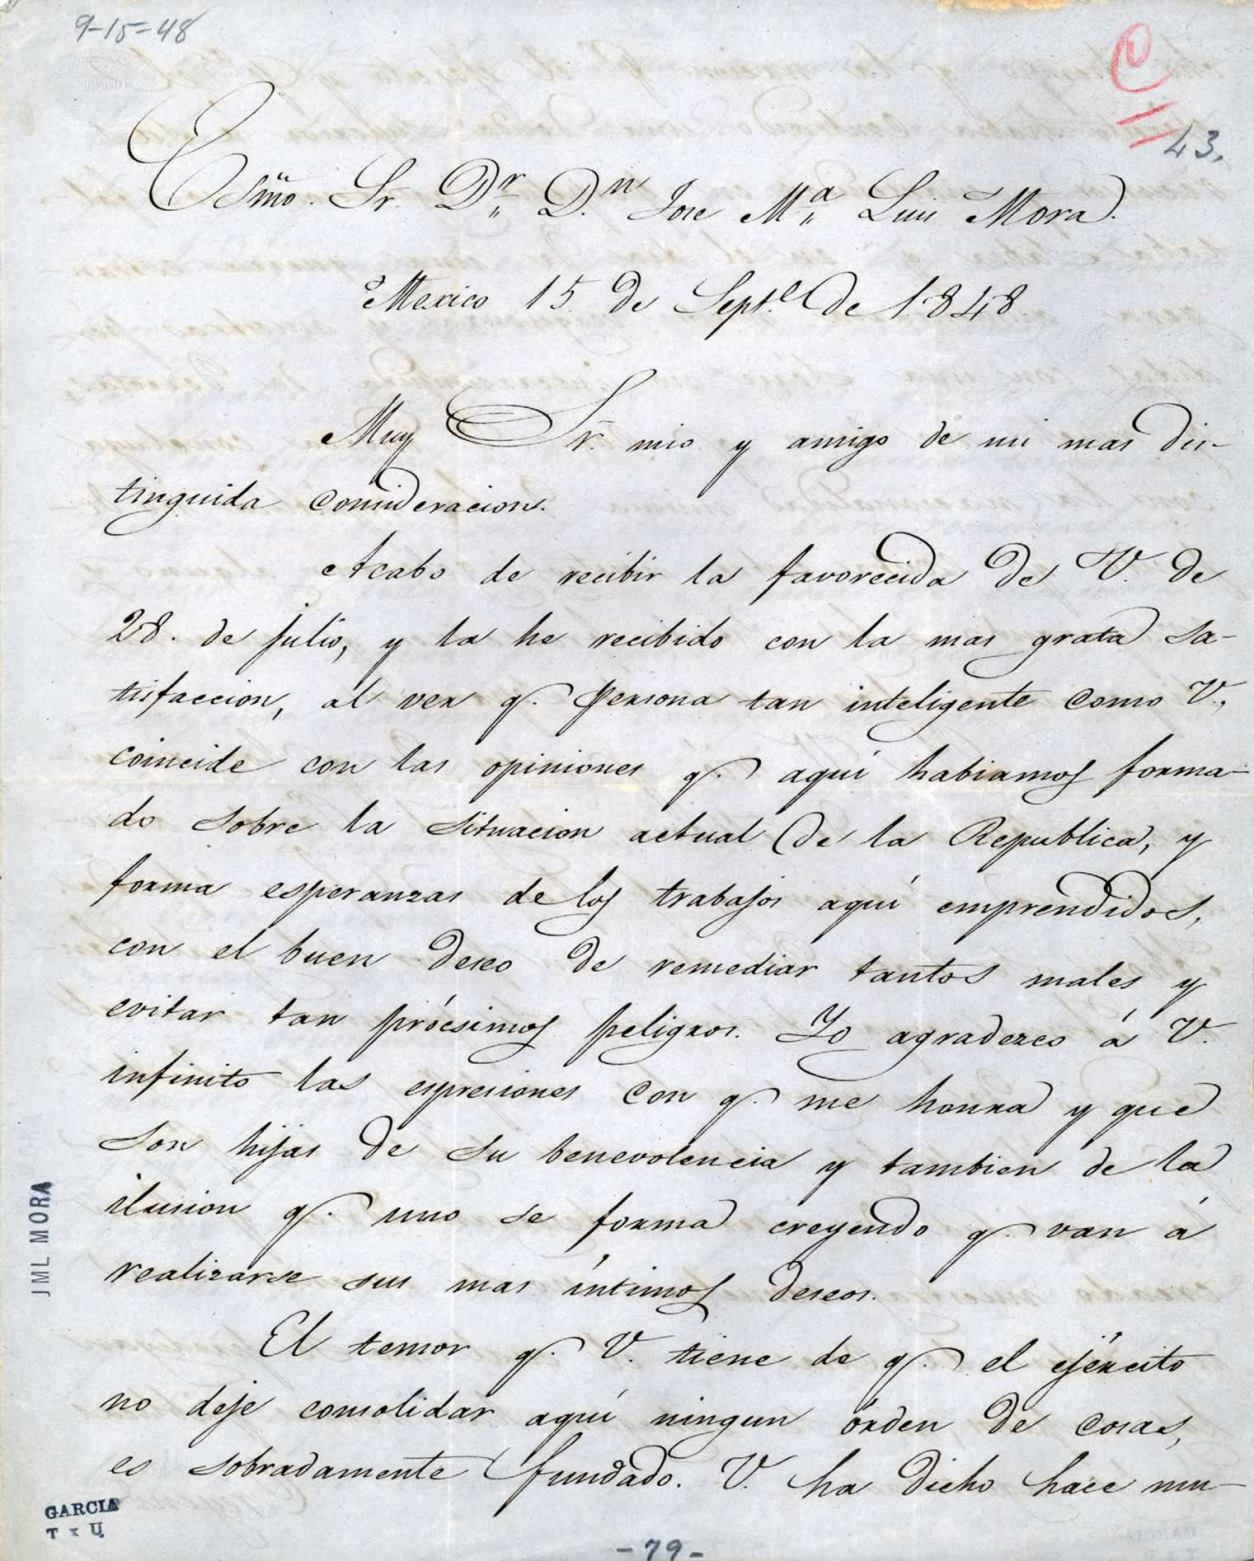 9-15-48
43.
Esmo. Sr. Dr. D.n Jose M.a Luis Mora.
Mexico 15 de Sept.e de 1848.
Muy Sr. mio y amigo de mi mas dis-
tinguida consideracion.
Acabo de recibir la favorecida de V. de
28. de julio, y la he recibido con la mas grata sa-
tisfaccion, al ver q. persona tan inteligente como V.,
coincide con las opiniones q. aquí habiamos forma-
do sobre la situacion actual de la Republica, y
forma esperanzas de los trabajos aquí emprendidos,
con el buen deseo de remediar tantos males y
evitar tan prócsimos peligros. Yo agradezco á V.
infinito las espresiones con q. me honra y que
son hijas de su benevolencia y tambien de la
ilusion q. uno se forma creyendo q. van á
realizarse sus mas íntimos deseos.
El temor q. V. tiene de q. el ejército
no deje consolidar aquí ningun órden de cosas,
es sobradamente fundado. V. ha dicho hace mu-
JML MORA
GARCIA
T x U
-79-